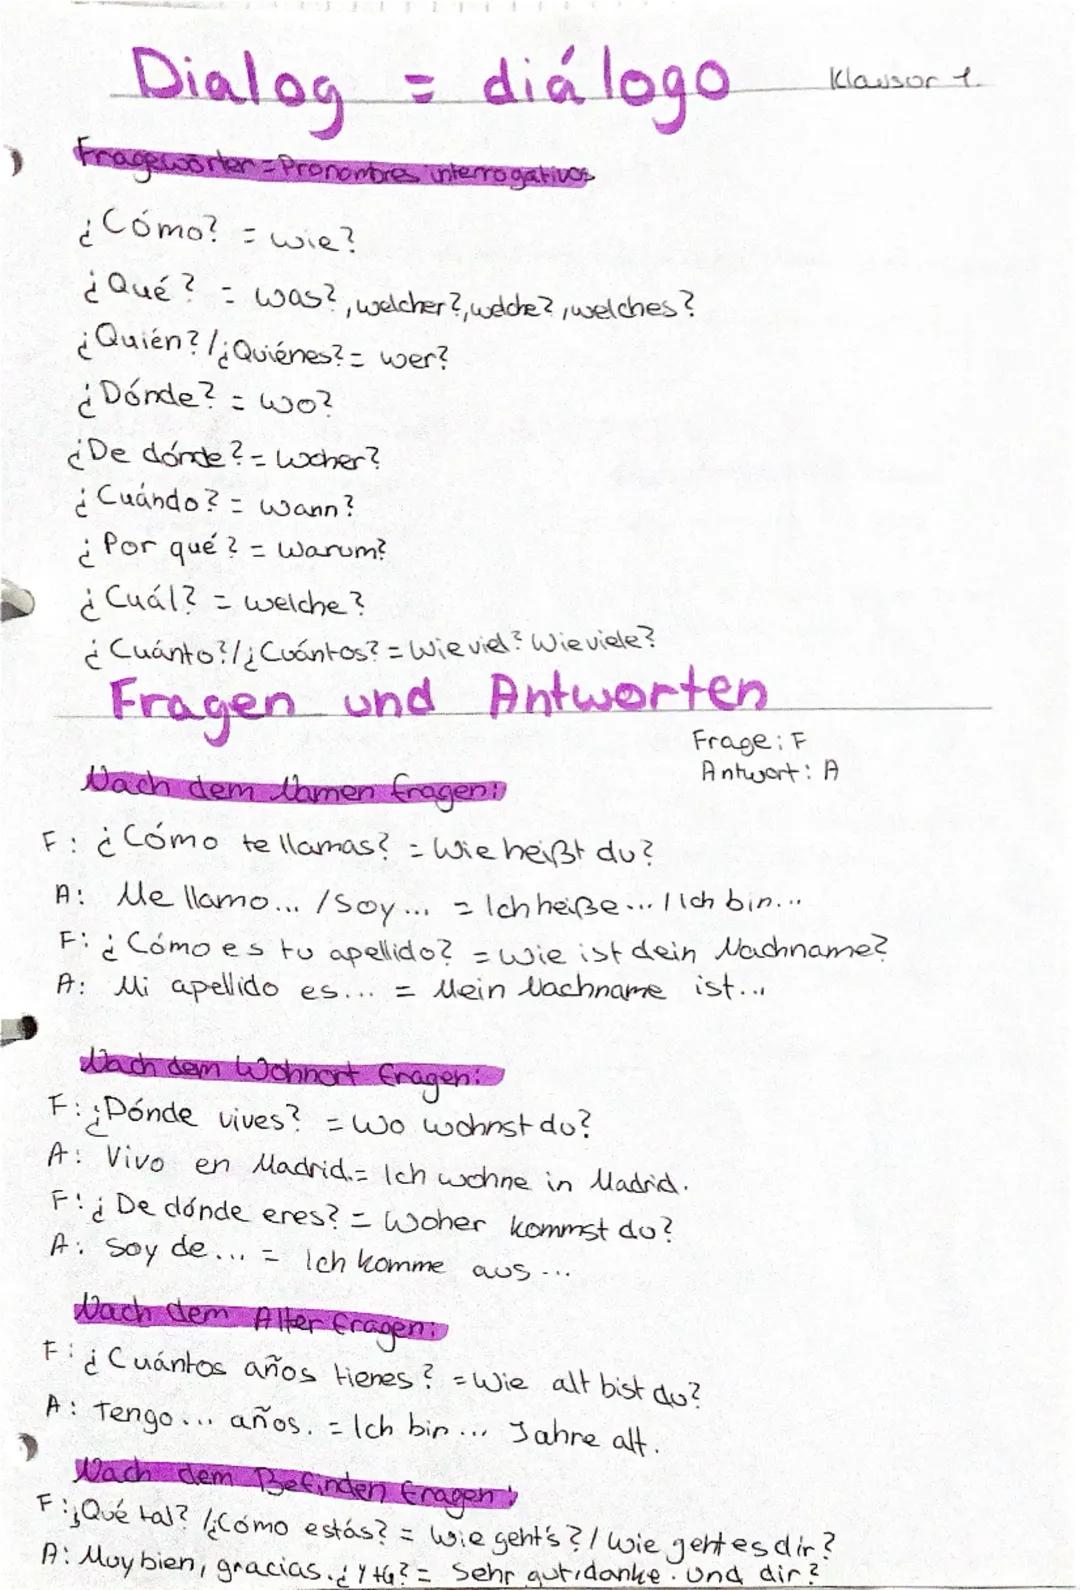 Dialog = diálogo
Klausur 1.
Fragewörter = Pronombres interrogativos
¿Cómo? = wie?
¿Qué? = was?, welcher?, welche?, welches?
¿Quién?/¿Quiénes? = wer?
¿Dónde? = wo?
¿De dónde? = woher?
¿Cuándo? = wann?
¿Por qué? = Warum?
¿Cuál? = welche?
¿Cuánto?/¿Cuántos? = Wie viel? Wie viele?
Fragen und Antworten
Frage: F
Antwort: A
Nach dem Namen fragen:
F: ¿Cómo te llamas? = Wie heißt du?
A: Me llamo... /Soy... = Ich heiße... / Ich bin...
F: ¿Cómo es tu apellido? = Wie ist dein Nachname?
A: Mi apellido es... = Mein Nachname ist...
Nach dem Wohnort fragen:
F: ¿Dónde vives? = Wo wohnst du?
A: Vivo en Madrid. = Ich wohne in Madrid.
F: ¿De dónde eres? = Woher kommst du?
A: Soy de... = Ich komme aus...
Nach dem Alter fragen:
F: ¿Cuántos años tienes? = Wie alt bist du?
A: Tengo... años. = Ich bin... Jahre alt.
Nach dem Befinden fragen:
F: ¿Qué tal? /¿Cómo estás? = Wie geht's?/ Wie geht es dir?
A: Muy bien, gracias. ¿Y tú? = Sehr gut, danke. Und dir?